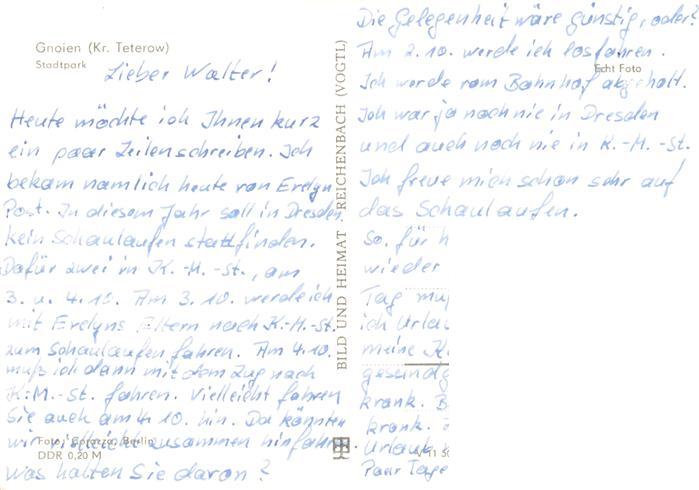 Gnoien (Kr. Teterow)
Stadtpark
Lieber Walter!
Heute möchte ich Ihnen kurz
ein paar Zeilen schreiben. Ich
bekam nämlich heute von Evelyn
Post. In diesem Jahr soll in Dresden
kein Schaulaufen stattfinden.
Dafür zwei in K.-M.-St., am
3. u. 4.10. Am 3.10. werde ich
mit Evelyns Eltern nach K.-M.-St.
zum Schaulaufen fahren. Am 4.10.
muß ich dann mit dem Zug nach
K.-M.-St. fahren. Vielleicht fahren
Sie auch am 4.10. hin. Da könnten
wir vielleicht zusammen hinfahren.
Was halten Sie davon?
Foto: Berlin
DDR 0,20 M
BILD UND HEIMAT REICHENBACH (VOGTL)
Die Gelegenheit wäre günstig, oder?
Am 2.10. werde ich losfahren.
Echt Foto
Ich werde vom Bahnhof abgeholt.
Ich war ja noch nie in Dresden
und auch noch nie in K.-M.-St.
Ich freue mich schon sehr auf
das Schaulaufen.
So, für h
wieder
Tag muß
ich Urlau
meine K
gesund
krank. B
krank.
Urlaub
Paar Tage